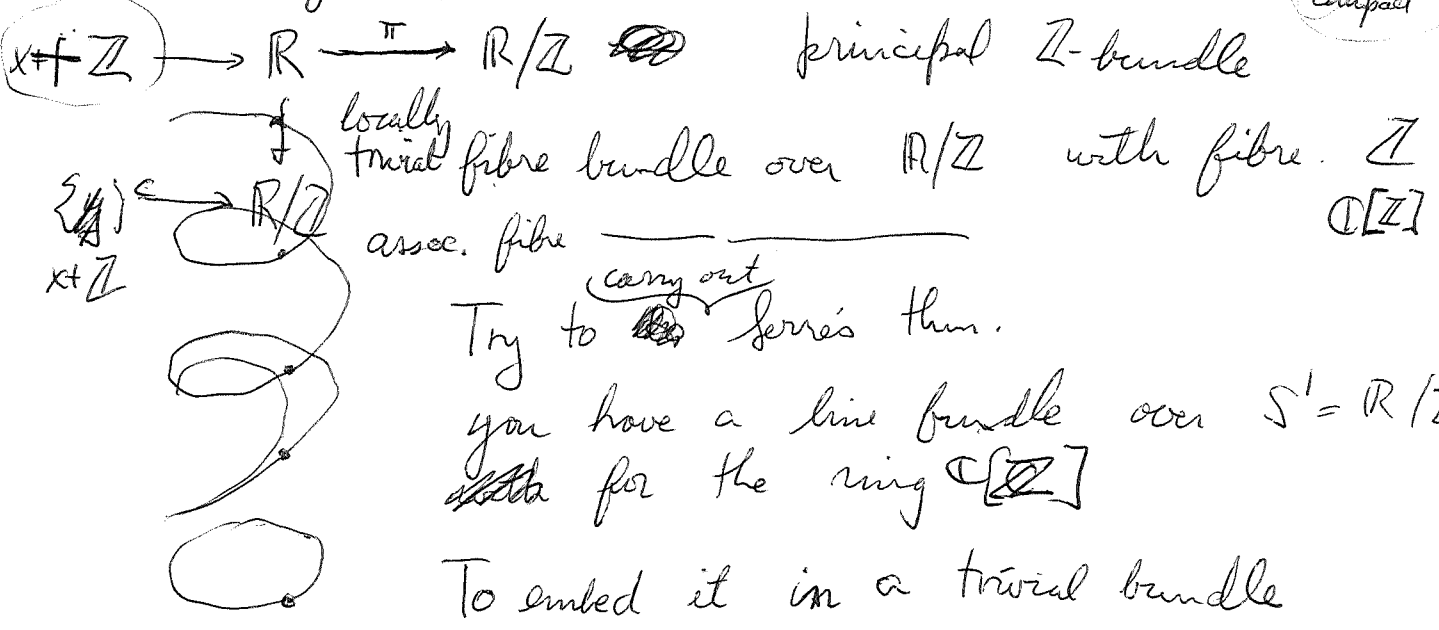 compact
x+Z → R —π→ R/Z principal Z-bundle
locally
trivial fibre bundle over R/Z with fibre. Z
{y} ↪ R/Z C[Z]
x+Z assoc. fibre —— ————
carry out
Try to Serre's thm.
you have a line bundle over S¹ = R/Z
for the ring C[Z]
To embed it in a trivial bundle